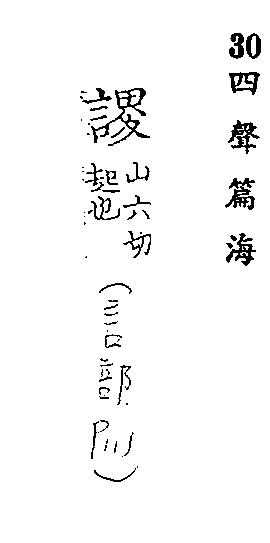 30四聲篇海
謖山六切
起也
(言部